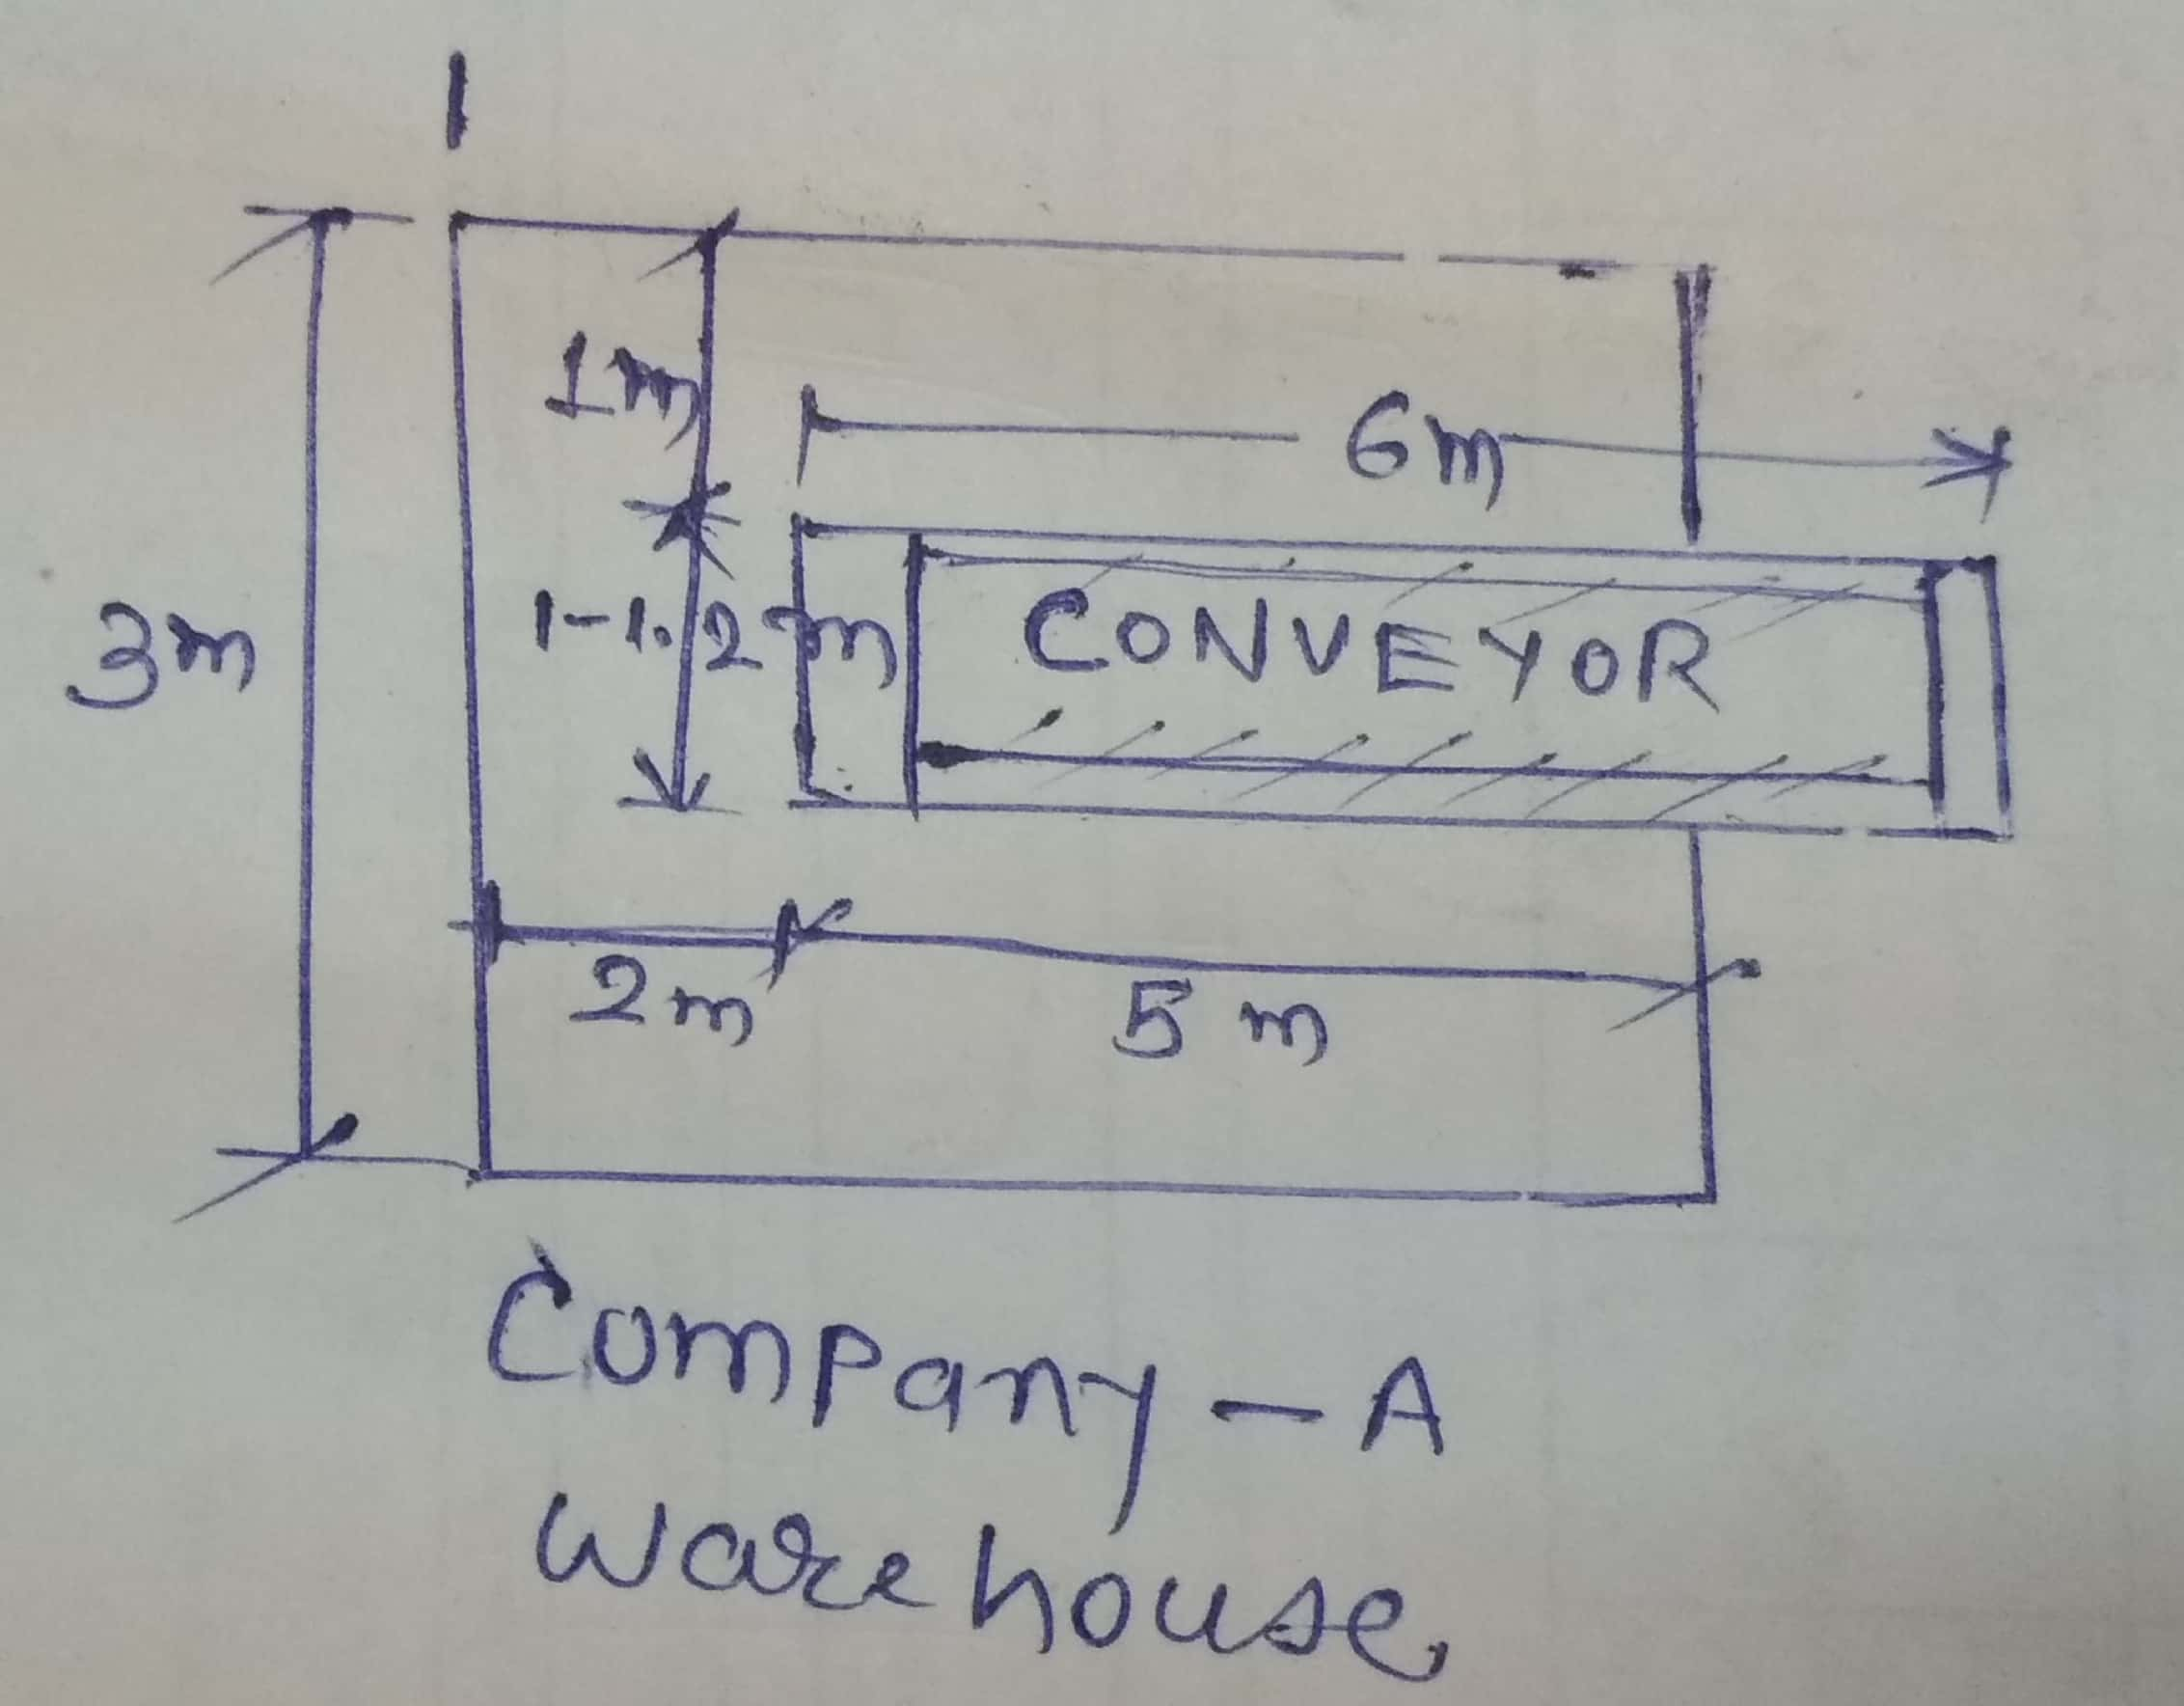 1m
6m
3m
1-1.2m
CONVEYOR
2m
5m
Company-A
Warehouse